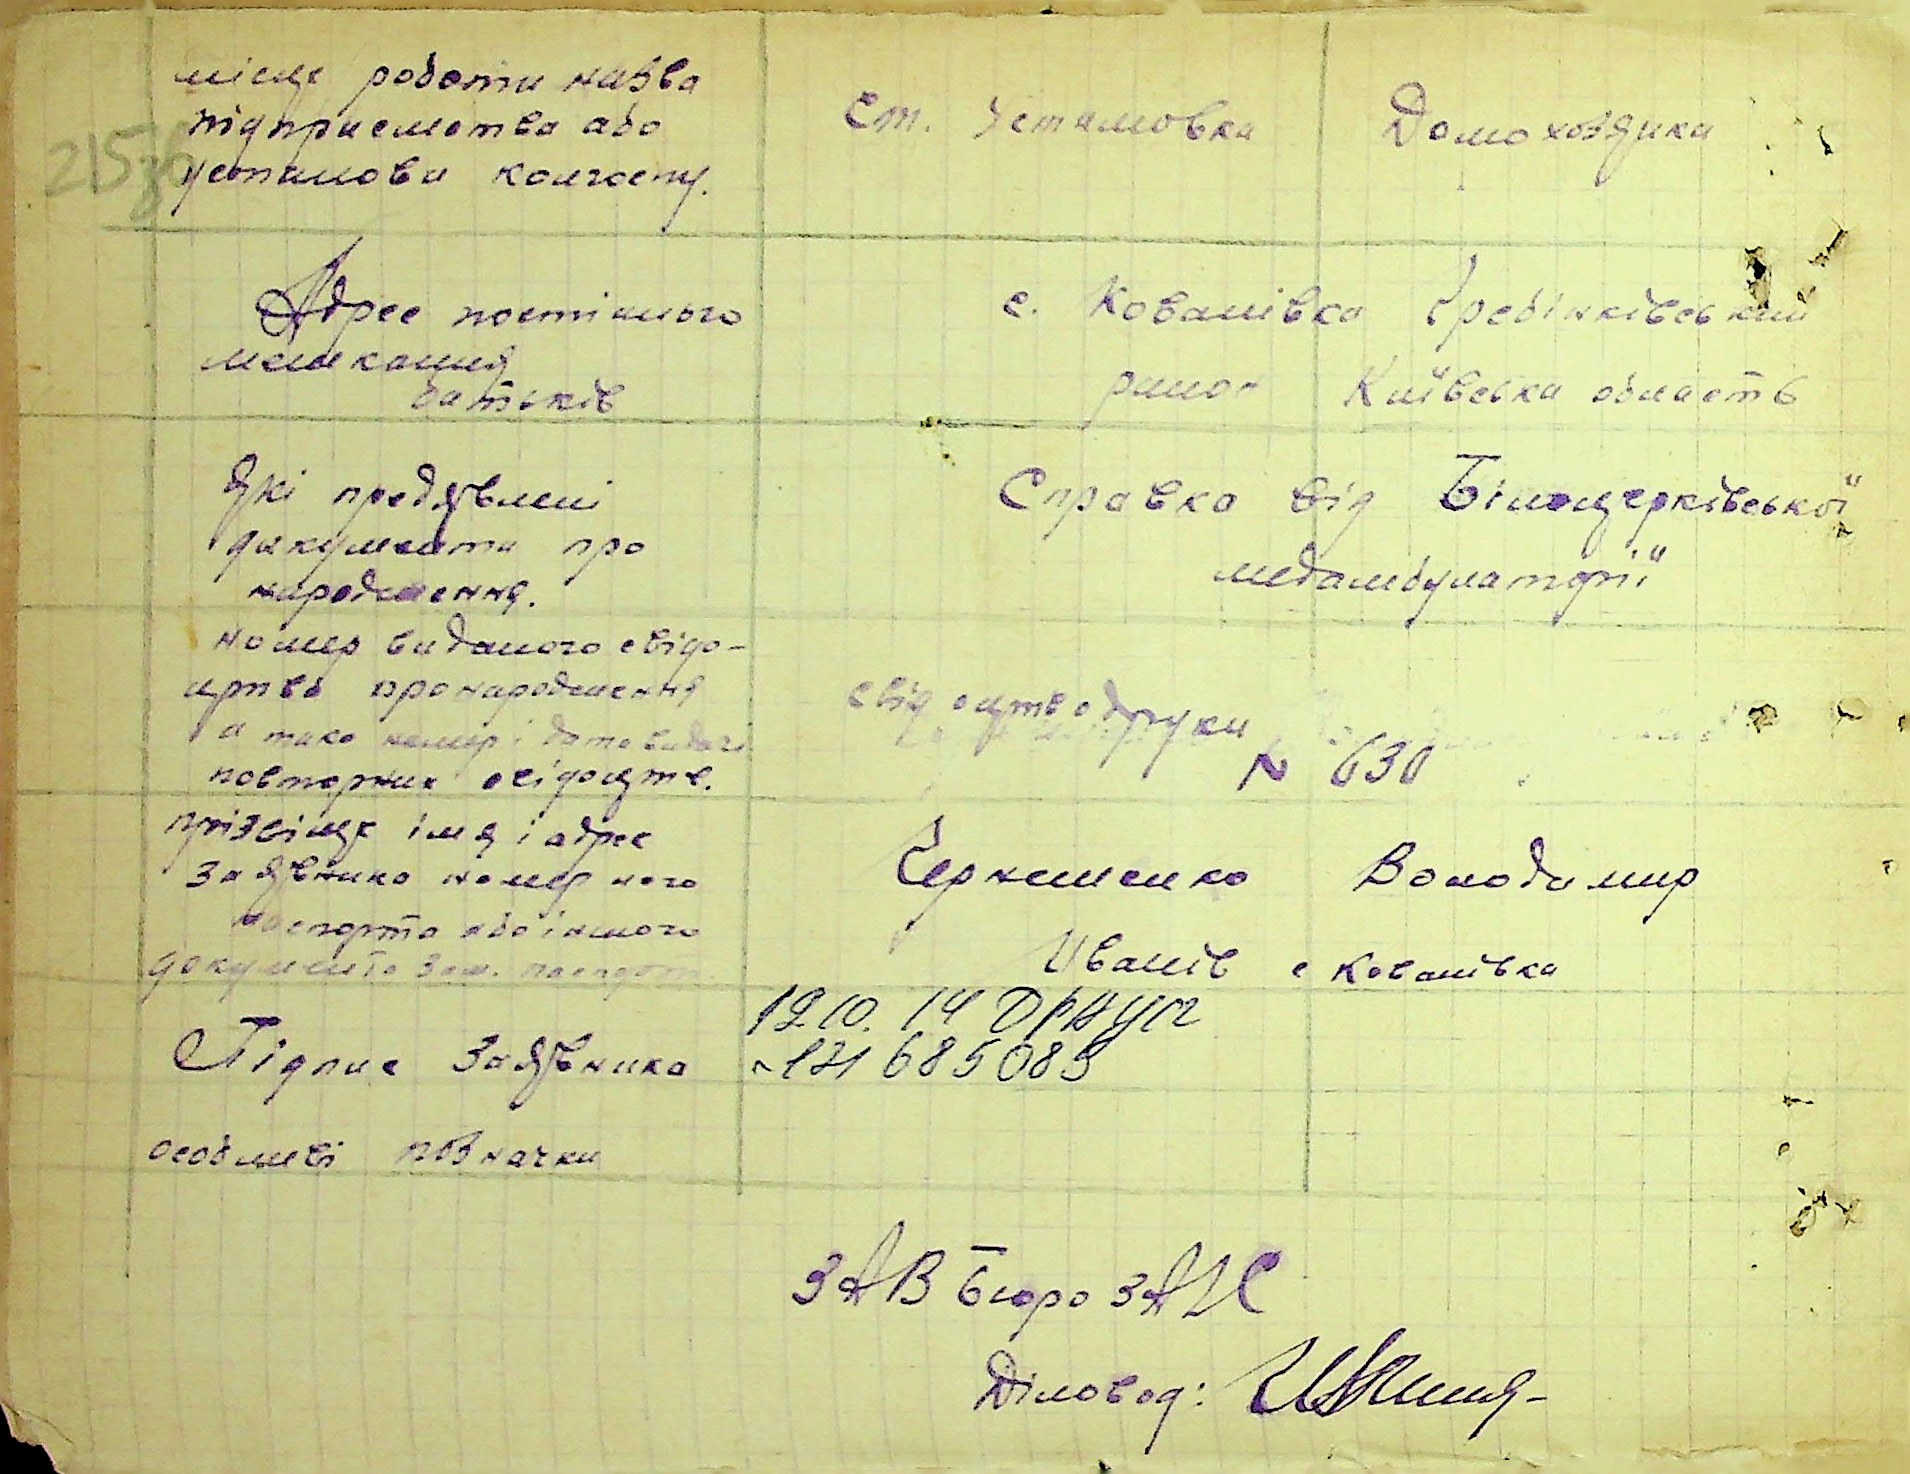 місце роботи назва
підприемства або
установи колгоспу.
Ст. Устимовка
Домохозяйка
215
Адрес постійного
мешкання
батьків
с. Ковалівка Гребінківський
район Київська область
Які предявлені
документи про
народження.
Справка від Білоцерківської
медамбулаторії
номер виданого свідо-
цтва про народження
а тако номер і дата видачі
повторних свідоцтв.
свідоцтво
№ 630
прізвіще імя і адрес
заявника номер його
паспорта або іншого
документа зам. паспорт
Чернешенко Володимир
Иванів с Ковалівка
Підпис Заявника
19.10.14
685085
особливі позначки
ЗАВ Бюро ЗАГС
Діловод: